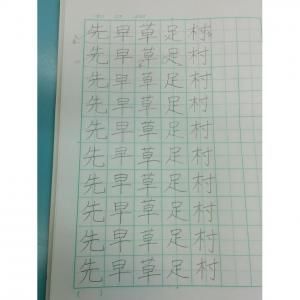 先早草足村
先早草足村
先早草足村
先早草足村
先早草足村
先早草足村
先早草足村
先早草足村
先早草足村
先早草足村